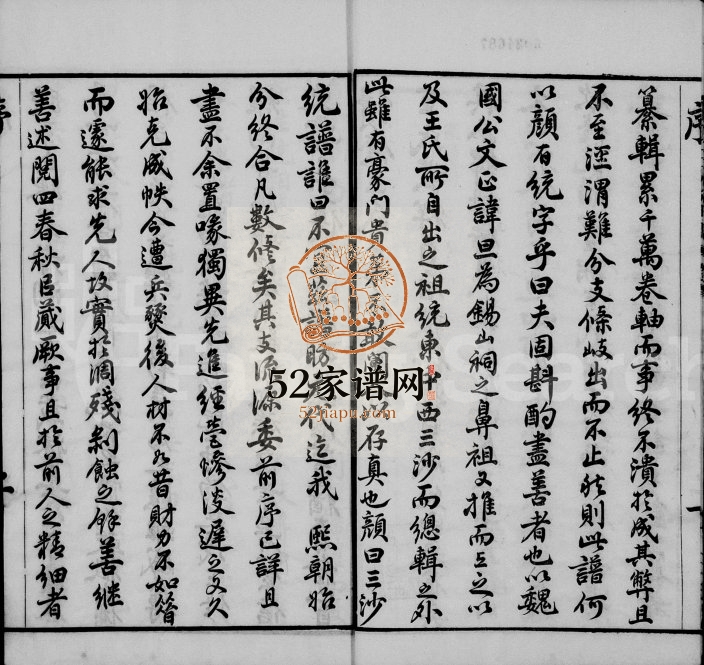 序
纂輯累千萬卷軸而事終不潰於成其弊且
不至涇渭難分支條岐出而不止然則此譜何
以顏百統字乎曰夫固斟酌盡善者也以魏
國公文正諱旦為錫山祠之鼻祖又推而上之以
及王氏所自出之祖統東西三沙而總輯之外
此雖有豪門貴以存真也顏曰三沙
統譜誰曰不宜代迄我 熙朝始
分終合凡數修矣其支派源委前序已詳且
盡不余置喙獨異先進經營慘淡遲之又久
始克成帙今遭兵燹後人材不如昔財力不如昔
而遽能求先人故實於凋殘剝蝕之餘善繼
善述閱四春秋臣蕆厥事且於前人之精細者
52家谱网
52jiapu.com